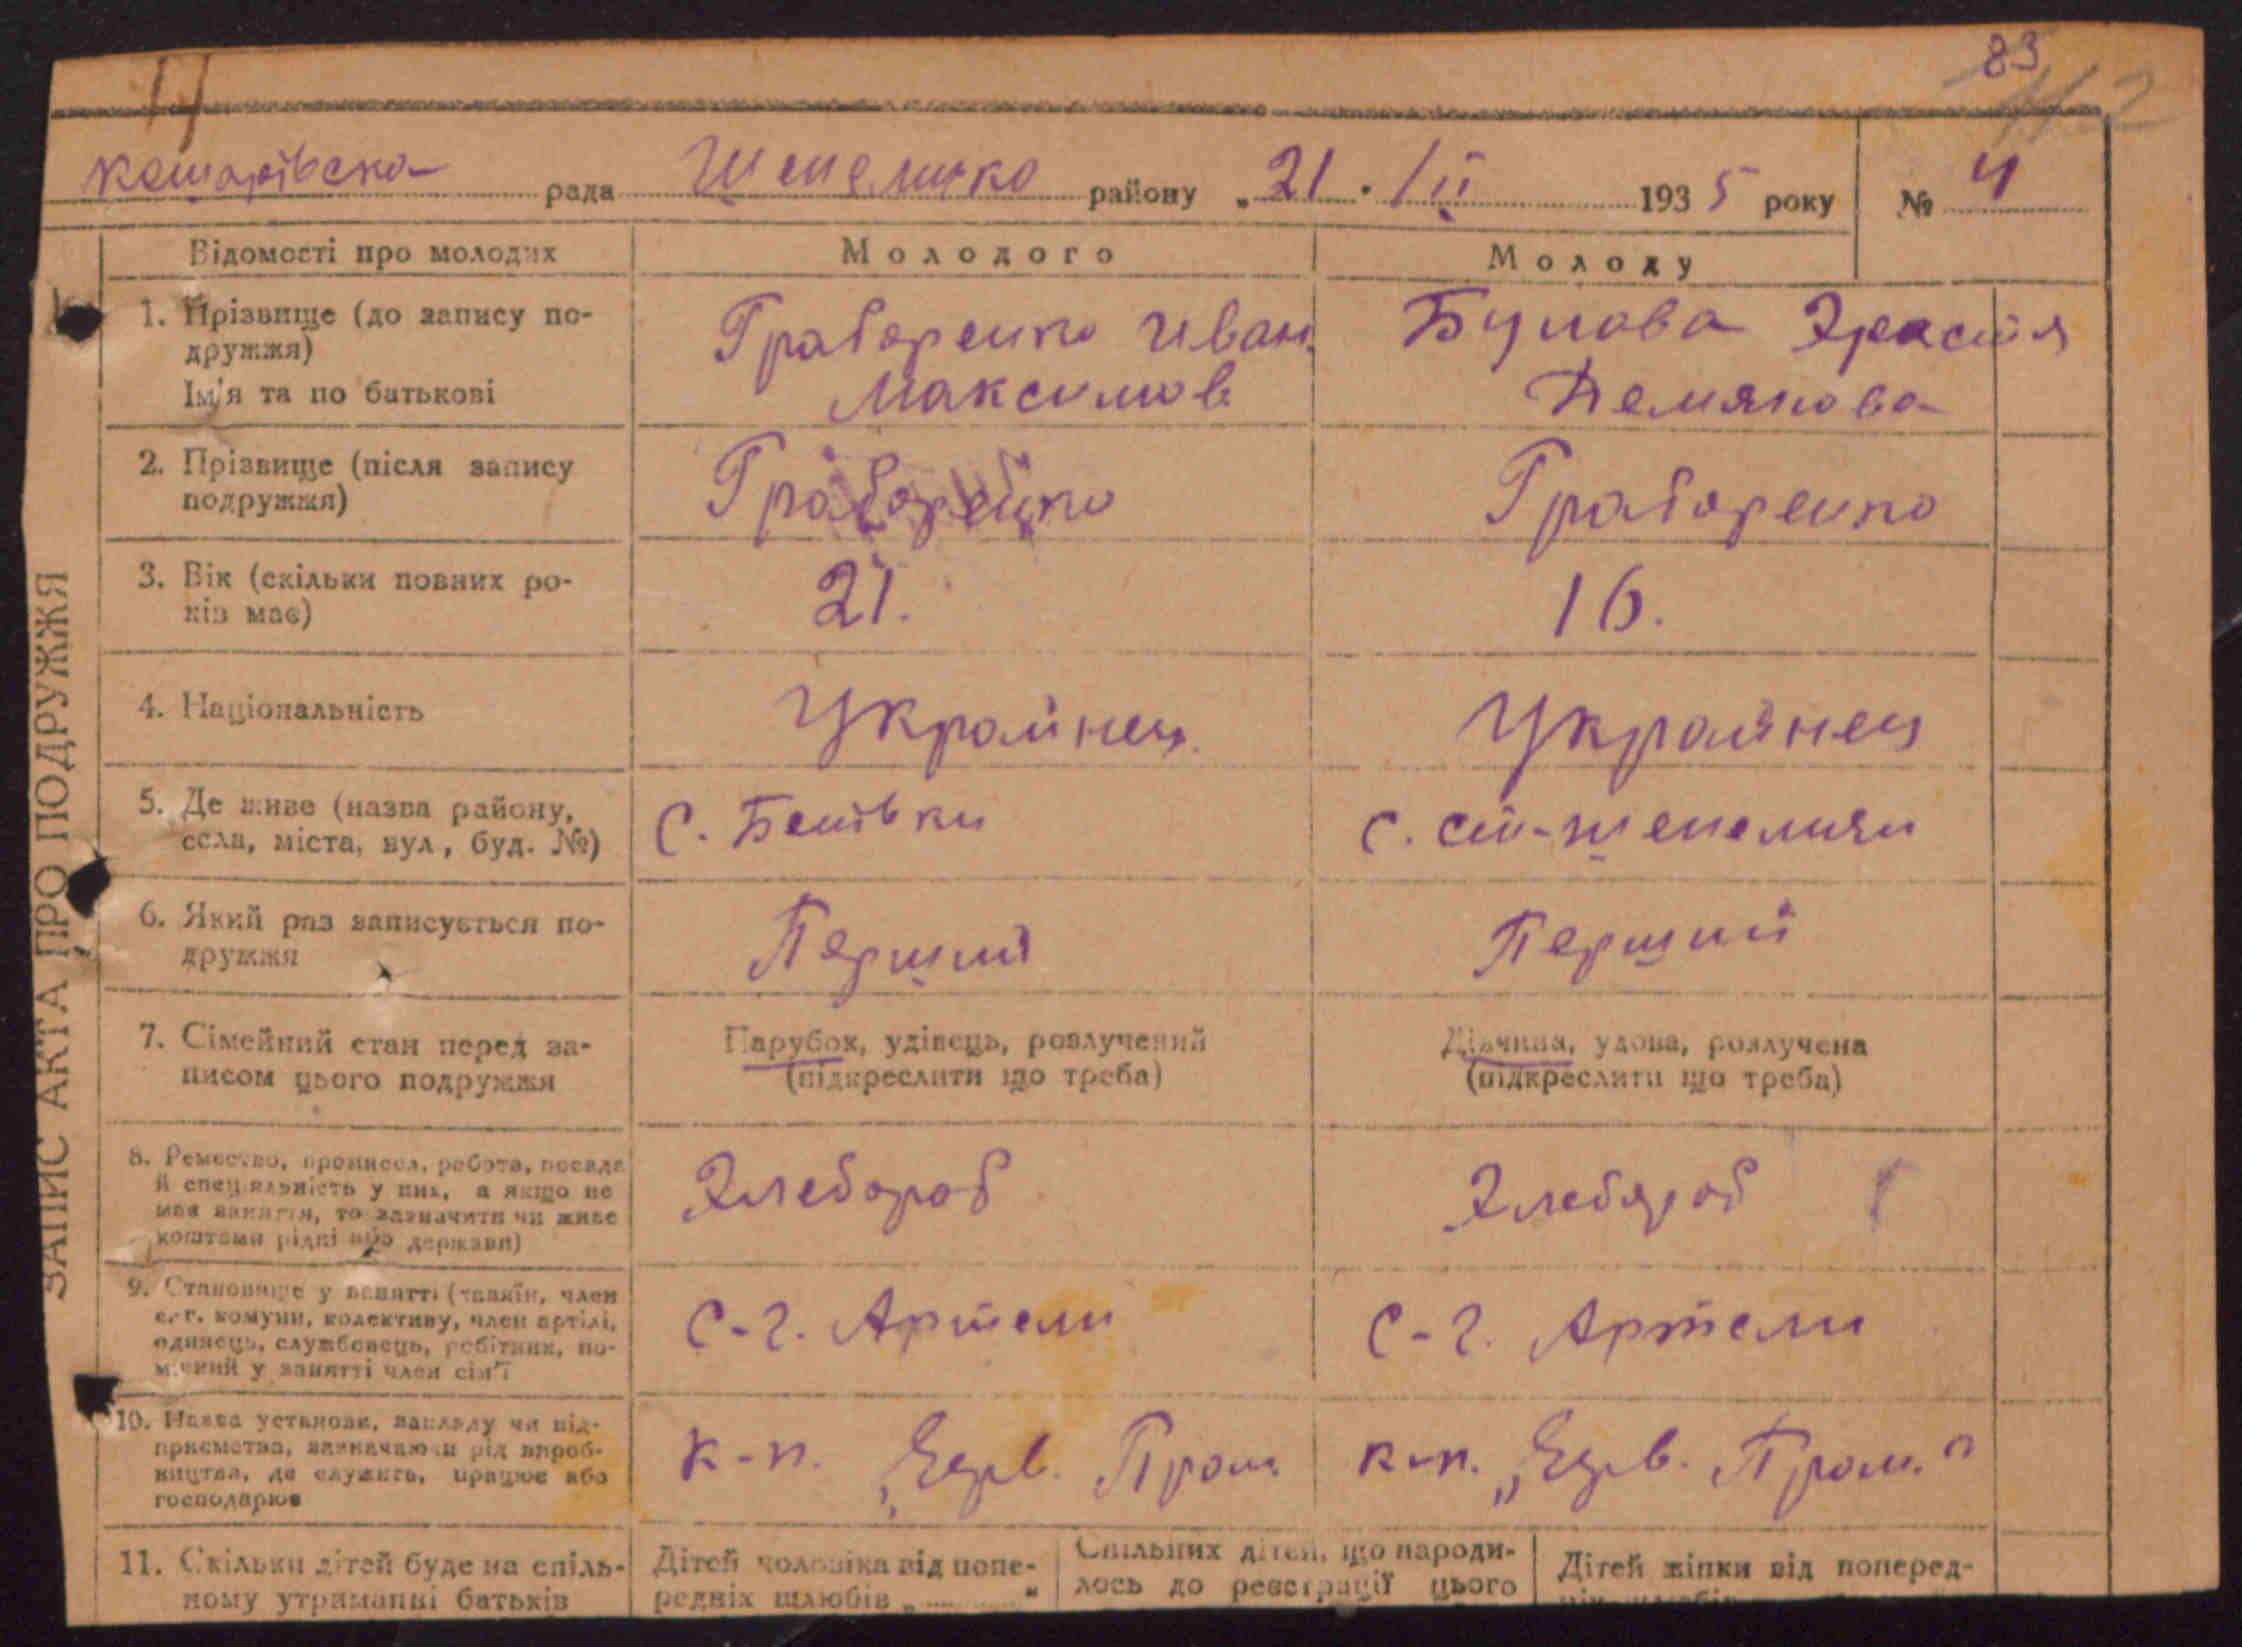 83
кошарівска рада Шепелицко району „21“ III 1935 року № 4
Відомості про молодих Молодого Молоду
1. Прізвище (до запису по-
дружжя)
Ім'я та по батькові
Граборенко Иван
Максимов
Булова
Демянова
2. Прізвище (після запису
подружжя)
Граборенко Граборенко
3. Вік (скільки повних ро-
ків має)
21. 16.
4. Національність
Украйнец. Украйнец
5. Де живе (назва району,
села, міста, вул., буд. №)
С. Бенівки с. ст-шепеличи
6. Який раз записується по-
дружжя
Перший Перший
7. Сімейний стан перед за-
писом цього подружжя
Парубок, удівець, розлучений
(підкреслити що треба)
Дівчина, удова, розлучена
(підкреслити що треба)
8. Ремество, промисел, робота, посада
й спеціяльність у них, а якщо не
має заняття, то зазначити чи живе
коштами рідні або держави)
Хлебороб Хлебороб
9. Становище у занятті (хазяїн, член
с.-г. комуни, колективу, член артілі,
одинець, службовець, робітник, по-
мічний у занятті член сім'ї
С-г. Артели С-г. Артели
10. Назва установи, закладу чи під-
приємства, зазначаючи рід вироб-
ництва, де служить, працює або
господарює
к-п. Пром. к-п. Пром."
11. Скільки дітей буде на спіль-
ному утриманні батьків
Дітей чоловіка від попе-
редніх шлюбів „ “
Спільних дітей, що народи-
лось до реєстрації цього
Дітей жінки від поперед-
ЗАПИС АКТА ПРО ПОДРУЖЖЯ